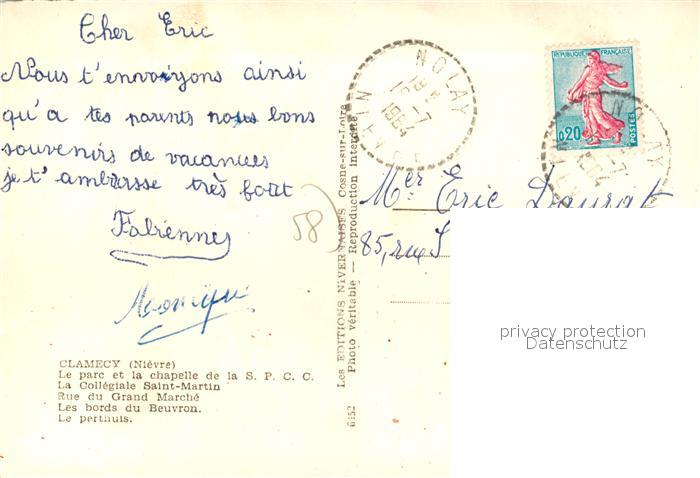 Cher Eric
Nous t'envoiyons ainsi
qu'a tes parents nous bons
souvenirs de vacances
je t'ambrasse très fort
Fabienne
Monique
CLAMECY (Nièvre)
Le parc et la chapelle de la S. P. C. C.
La Collégiale Saint-Martin
Rue du Grand Marché
Les bords du Beuvron.
Le perthuis.
58
Les EDITIONS NIVERNAISES Cosne-sur-Loire
Photo véritable — Reproduction interdite
6452
NOLAY
NIEVRE
1964
REPUBLIQUE FRANÇAISE
0,20
POSTES
NOLAY
1964
Mer Eric Daurat
85, rue S
privacy protection
Datenschutz